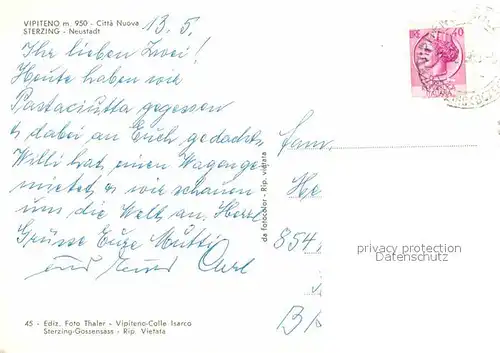 VIPITENO m. 950 - Città Nuova
STERZING - Neustadt
13.5.
Ihr lieben Zwei!
Heute haben wir
Pastaciutta gegessen
& dabei an Euch gedacht.
Willi hat einen Wagen ge-
mietet & wir schauen
uns die Welt an. Herzl.
Grüsse Eure Mutti
und Euer
45 - Ediz. Foto Thaler - Vipiteno-Colle Isarco
Sterzing-Gossensass - Rip. Vietata
da fotocolor - Rip. vietata
40
Fam.
He
854
privacy protection
Datenschutz